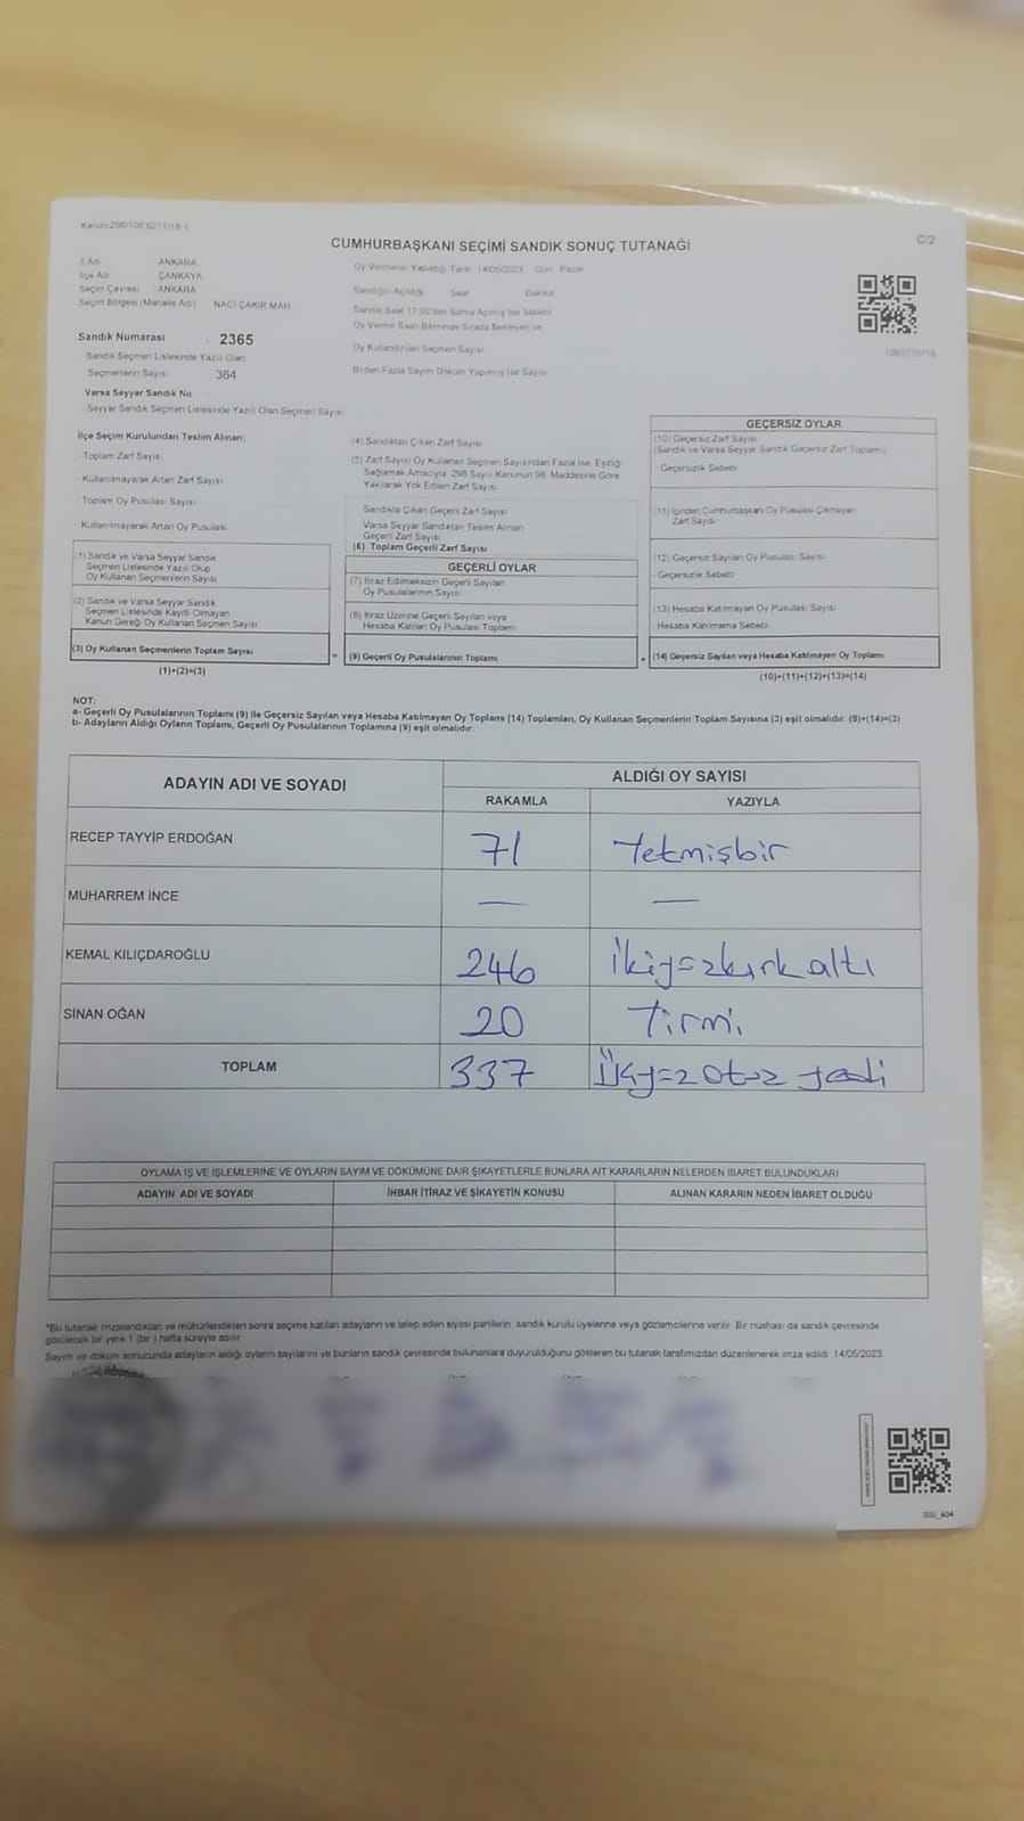 CUMHURBAŞKANI SEÇİMİ SANDIK SONUÇ TUTANAĞI
C/2
İl Adı ANKARA
İlçe Adı ÇANKAYA
Seçim Çevresi ANKARA
Seçim Bölgesi (Mahalle Adı) NACİ ÇAKIR MAH.
Sandık Numarası 2365
Sandık Seçmen Listesinde Yazılı Olan
Seçmenlerin Sayısı 364
Varsa Seyyar Sandık No
Seyyar Sandık Seçmen Listesinde Yazılı Olan Seçmen Sayısı
Oy Vermenin Yapıldığı Tarih 14/05/2023 Gün Pazar
Sandığın Açıldığı Saat Dakika
Oy Kullandırılan Seçmen Sayısı
Birden Fazla Sayım Döküm Yapılmış İse Sayısı
İlçe Seçim Kurulundan Teslim Alınan;
Toplam Zarf Sayısı
Kullanılmayarak Artan Zarf Sayısı
Toplam Oy Pusulası Sayısı
Kullanılmayarak Artan Oy Pusulası
(1) Sandık ve Varsa Seyyar Sandık
Seçmen Listesinde Yazılı Olup
Oy Kullanan Seçmenlerin Sayısı
(2) Sandık ve Varsa Seyyar Sandık
Seçmen Listesinde Kayıtlı Olmayan
Kanun Gereği Oy Kullanan Seçmen Sayısı
(3) Oy Kullanan Seçmenlerin Toplam Sayısı
(1)+(2)=(3)
(4) Sandıktan Çıkan Zarf Sayısı
(5) Zarf Sayısı Oy Kullanan Seçmen Sayısından Fazla İse, Eşitliği
Sağlamak Amacıyla, 298 Sayılı Kanunun 98. Maddesine Göre
Yakılarak Yok Edilen Zarf Sayısı
Sandıkta Çıkan Geçerli Zarf Sayısı
Varsa Seyyar Sandıktan Teslim Alınan
Geçerli Zarf Sayısı
(6) Toplam Geçerli Zarf Sayısı
GEÇERLİ OYLAR
(7) İtiraz Edilmeksizin Geçerli Sayılan
Oy Pusulalarının Sayısı
(8) İtiraz Üzerine Geçerli Sayılan veya
Hesaba Katılan Oy Pusulası Toplamı
(9) Geçerli Oy Pusulalarının Toplamı
GEÇERSİZ OYLAR
(10) Geçersiz Zarf Sayısı
(Sandık ve Varsa Seyyar Sandık Geçersiz Zarf Toplamı)
Geçersizlik Sebebi
(11) İçinden Cumhurbaşkanı Oy Pusulası Çıkmayan
Zarf Sayısı
(12) Geçersiz Sayılan Oy Pusulası Sayısı
Geçersizlik Sebebi
(13) Hesaba Katılmayan Oy Pusulası Sayısı
Hesaba Katılmama Sebebi
(14) Geçersiz Sayılan veya Hesaba Katılmayan Oy Toplamı
(10)+(11)+(12)+(13)=(14)
NOT:
a- Geçerli Oy Pusulalarının Toplamı (9) ile Geçersiz Sayılan veya Hesaba Katılmayan Oy Toplamı (14) Toplamları, Oy Kullanan Seçmenlerin Toplam Sayısına (3) eşit olmalıdır. (9)+(14)=(3)
b- Adayların Aldığı Oyların Toplamı, Geçerli Oy Pusulalarının Toplamına (9) eşit olmalıdır.
ADAYIN ADI VE SOYADI
ALDIĞI OY SAYISI
RAKAMLA YAZIYLA
RECEP TAYYİP ERDOĞAN 71 Yetmişbir
MUHARREM İNCE — —
KEMAL KILIÇDAROĞLU 246 İkiyüzkırkaltı
SİNAN OĞAN 20 Yirmi
TOPLAM 337 Üçyüzotuz yedi
OYLAMA İŞ VE İŞLEMLERİNE VE OYLARIN SAYIM VE DÖKÜMÜNE DAİR ŞİKAYETLERLE BUNLARA AİT KARARLARIN NELERDEN İBARET BULUNDUKLARI
ADAYIN ADI VE SOYADI
İHBAR İTİRAZ VE ŞİKAYETİN KONUSU
ALINAN KARARIN NEDEN İBARET OLDUĞU
*Bu tutanak imzalandıktan ve mühürlendikten sonra seçime katılan adayların ve talep eden siyasi partilerin, sandık kurulu üyelerine veya gözlemcilerine verilir. Bir nüshası da sandık çevresinde
görülecek bir yere 1 (bir) hafta süreyle asılır.
Sayım ve döküm sonucunda adayların aldığı oyların sayılarını ve bunların sandık çevresinde bulunanlara duyurulduğunu gösteren bu tutanak tarafımızdan düzenlenerek imza edildi. 14/05/2023